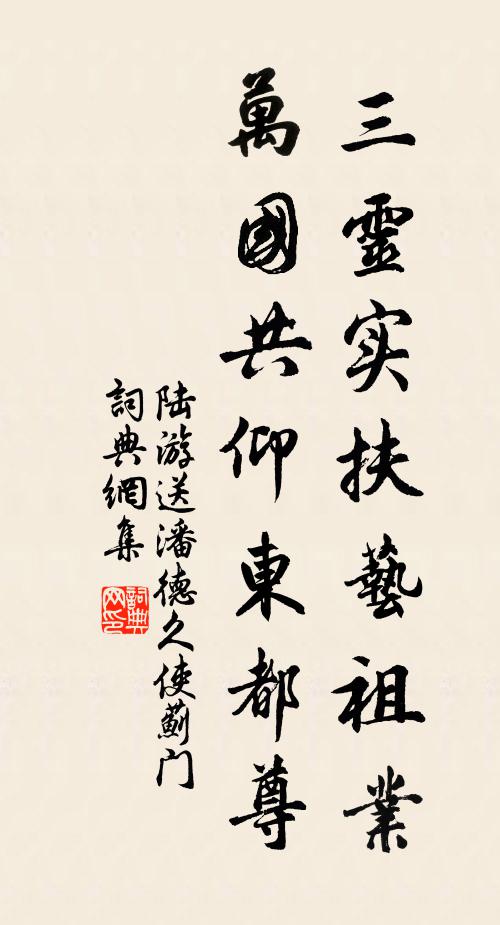 三靈实扶藝祖業
萬國共仰東都尊
陆游送潘德久使薊门
詞典網集
詞典网印